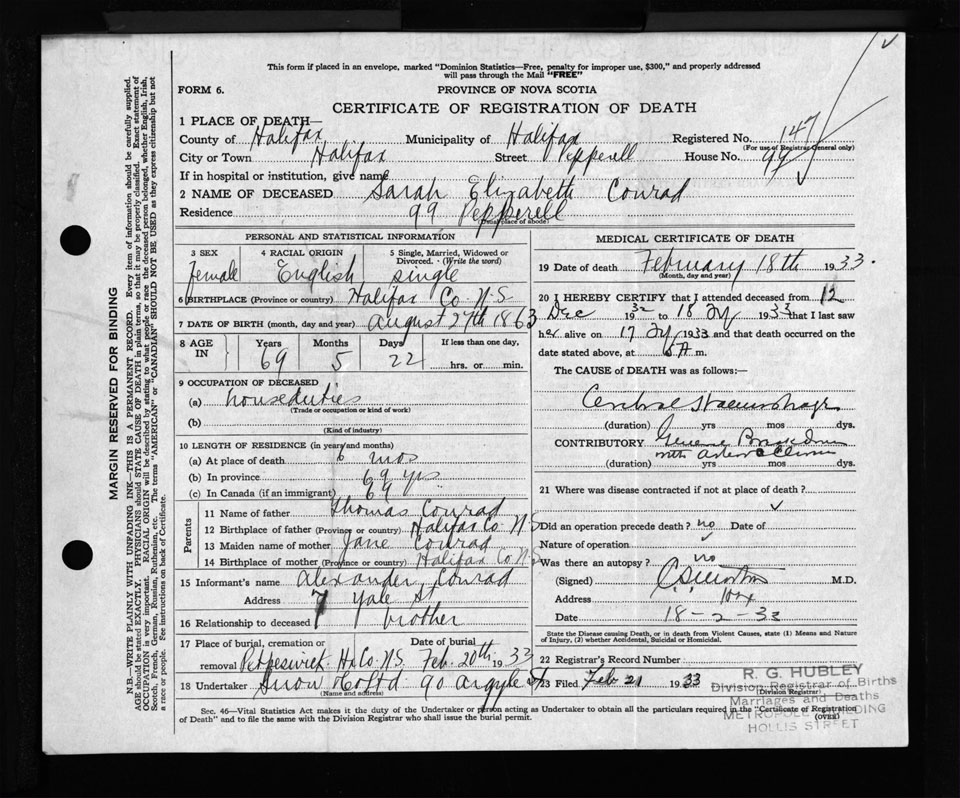 This form if placed in an envelope, marked "Dominion Statistics—Free, penalty for improper use, $300," and properly addressed
will pass through the Mail "FREE"
FORM 6.
PROVINCE OF NOVA SCOTIA
CERTIFICATE OF REGISTRATION OF DEATH
1 PLACE OF DEATH—
County of Halifax Municipality of Halifax Registered No. 147
(For use of Registrar General only)
City or Town Halifax Street Pepperell House No. 99
If in hospital or institution, give name
2 NAME OF DECEASED Sarah Elizabeth Conrad
Residence 99 Pepperell
(Usual place of abode)
PERSONAL AND STATISTICAL INFORMATION
3 SEX 4 RACIAL ORIGIN 5 Single, Married, Widowed or
Divorced. (Write the word)
female English single
6 BIRTHPLACE (Province or country) Halifax Co N.S
7 DATE OF BIRTH (month, day and year) August 27th 1863
8 AGE IN Years Months Days If less than one day,
69 5 22 hrs. or min.
9 OCCUPATION OF DECEASED
(a) houseduties
(Trade or occupation or kind of work)
(b)
(Kind of industry)
10 LENGTH OF RESIDENCE (in years and months)
(a) At place of death 6 mos
(b) In province 69 yrs
(c) In Canada (if an immigrant) 69
Parents
11 Name of father Thomas Conrad
12 Birthplace of father (Province or country) Halifax Co N.S
13 Maiden name of mother Jane Conrad
14 Birthplace of mother (Province or country) Halifax Co N.S
15 Informant's name Alexander Conrad
Address 7 Yale St
16 Relationship to deceased brother
17 Place of burial, cremation or Date of burial
removal Petpeswick Hx Co N.S. Feb. 20th 1933
18 Undertaker Snow Co Ltd 90 Argyle St
(Name and address)
MEDICAL CERTIFICATE OF DEATH
19 Date of death February 18th 1933.
(Month, day and year)
20 I HEREBY CERTIFY that I attended deceased from 12
Dec 1932 to 18 Fy 1933 that I last saw
her alive on 17 Fy 1933 and that death occurred on the
date stated above, at 5 A m.
The CAUSE of DEATH was as follows:—
Cerebral Haemorrhage
(duration) yrs mos dys.
CONTRIBUTORY
with
(duration) yrs mos dys.
21 Where was disease contracted if not at place of death?
Did an operation precede death? no Date of
Nature of operation
Was there an autopsy? no
(Signed) M.D.
Address Hfx
Date 18-2-33
State the Disease causing Death, or in death from Violent Causes, state (1) Means and Nature
of Injury, (2) whether Accidental, Suicidal or Homicidal.
22 Registrar's Record Number
23 Filed Feb 21 1933
(Division Registrar)
R. G. HUBLEY
Division Registrar of Births
Marriages and Deaths
METROPOLE BUILDING
HOLLIS STREET
Sec. 46—Vital Statistics Act makes it the duty of the Undertaker or person acting as Undertaker to obtain all the particulars required in the "Certificate of Registration
of Death" and to file the same with the Division Registrar who shall issue the burial permit.
(OVER)
MARGIN RESERVED FOR BINDING
N.B.—WRITE PLAINLY WITH UNFADING INK—THIS IS A PERMANENT RECORD. Every item of information should be carefully supplied.
AGE should be stated EXACTLY. PHYSICIANS should STATE CAUSE OF DEATH in plain terms, so that it may be properly classified. Exact statement of
OCCUPATION is very important. RACIAL ORIGIN will be described by stating to what people or race the deceased person belonged, whether English, Irish,
Scotch, French, German, Russian, Ruthenian, etc. The terms "AMERICAN" or "CANADIAN" SHOULD NOT BE USED as they express citizenship but not
a race or people. See instructions on back of Certificate.